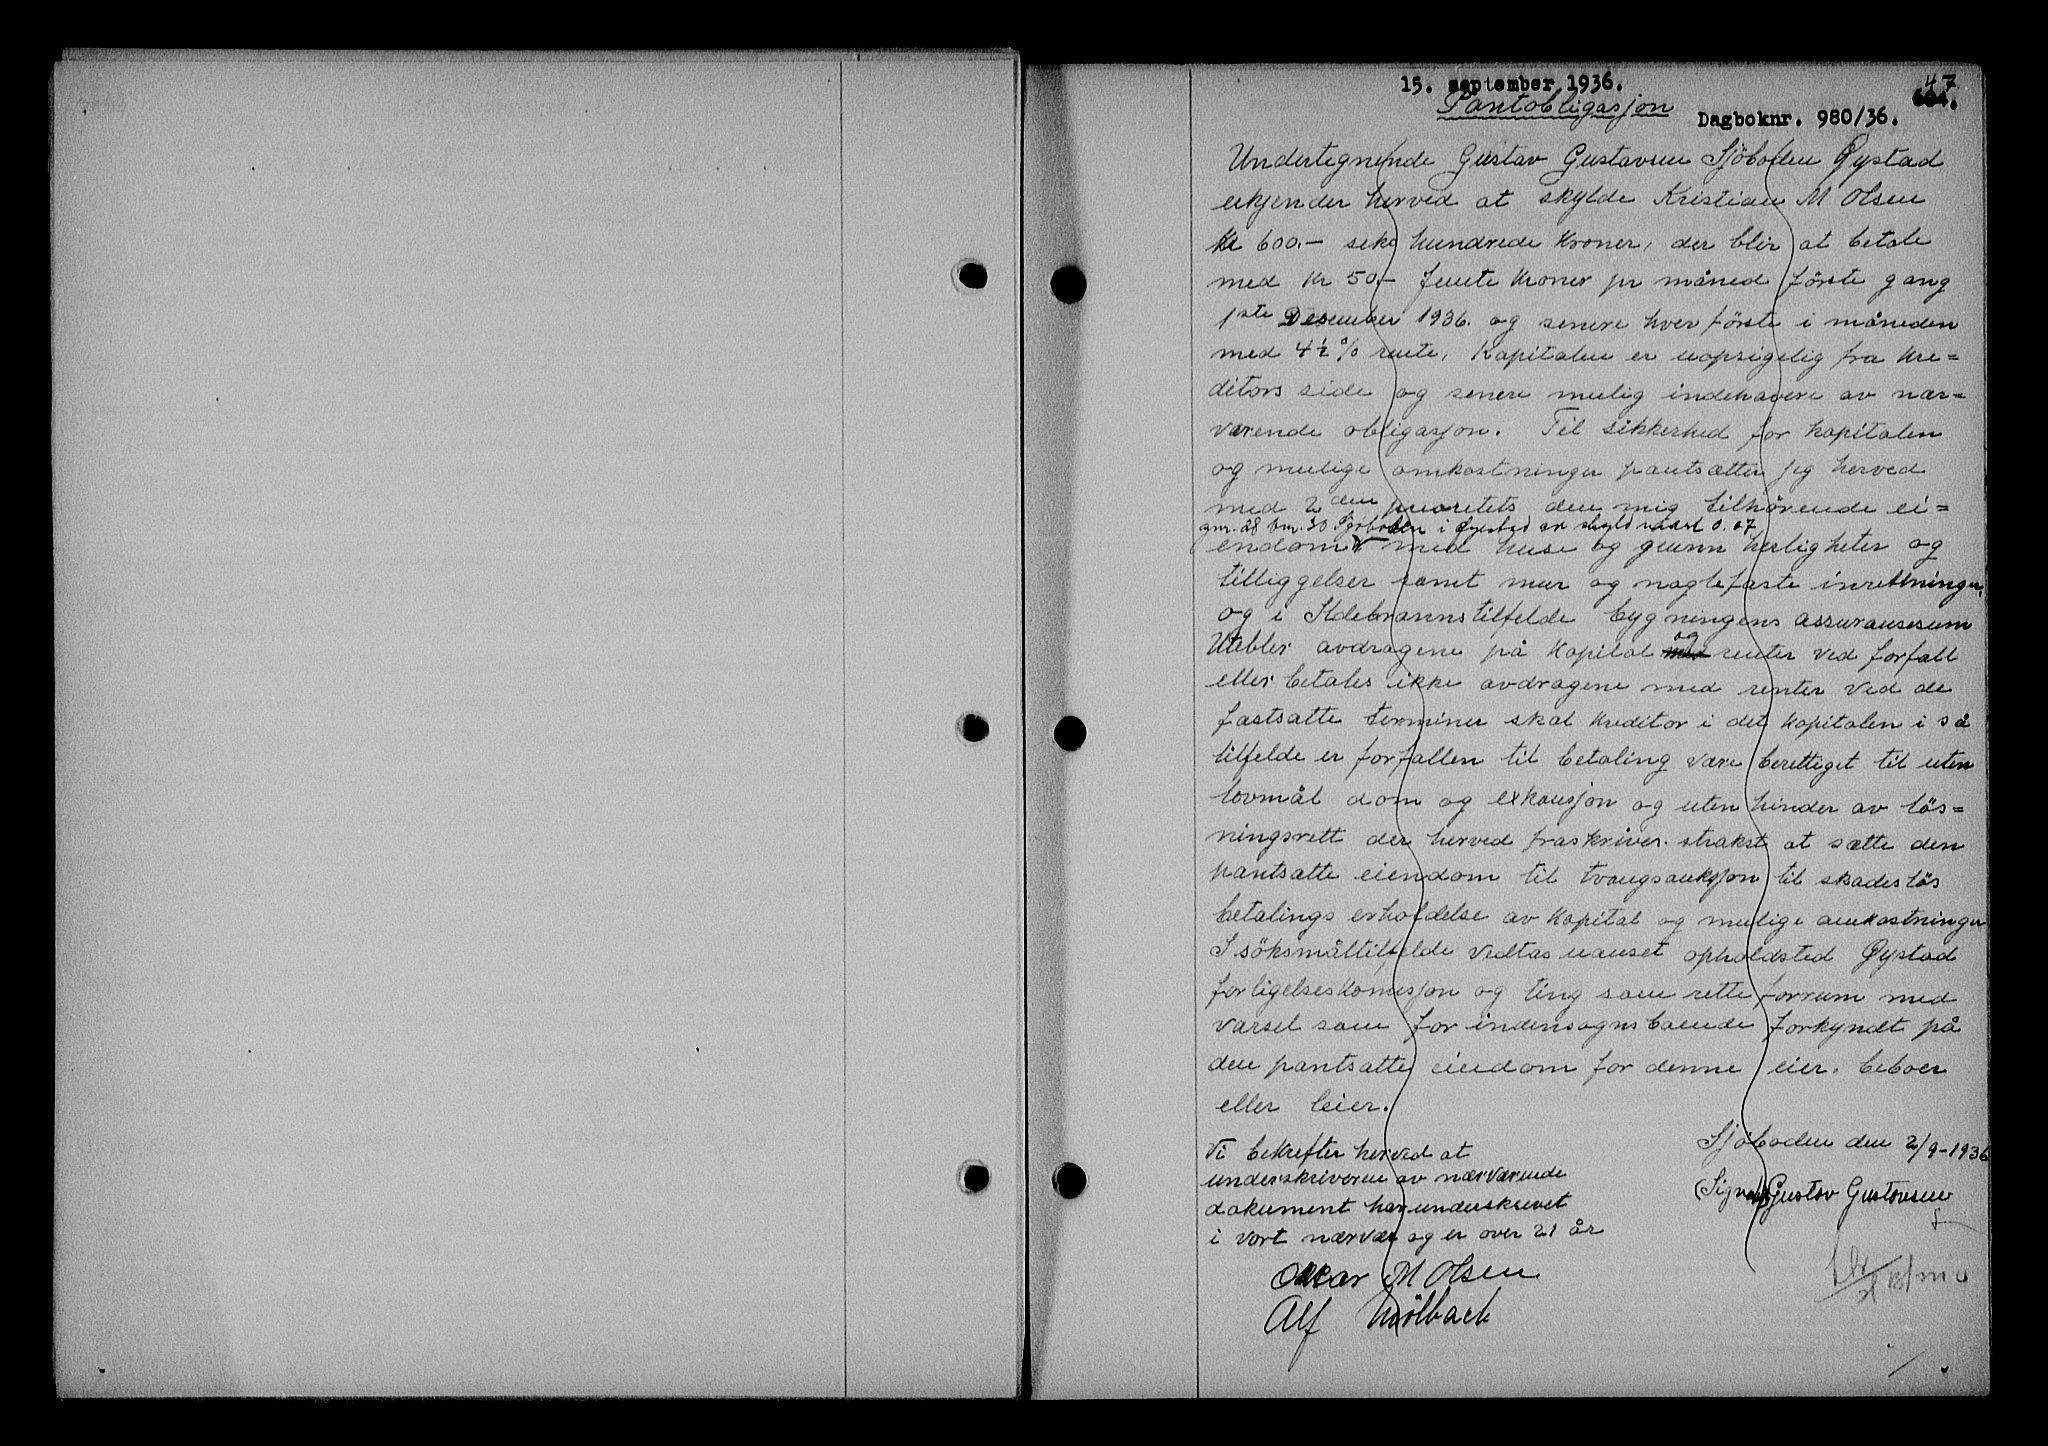 15. september 1936.
47
Pantobligasjon
Dagboknr. 980/36.
Undertegnende Gustav Gustavsen Sjöboden Øystad
erkjender herved at skylde Kristian M Olsen
Kr 600.- seks hundrede Kroner, der blir at betale
med Kr 50.- femte Kroner pr måned förste gang
1ste Desember 1936. og senere hver förste i måneden
med 4½ % rente, Kapitalen er uopsigelig fra Kre=
ditors side og senere mulig indehavere av nær=
værende obligasjon. Til sikkerhed for kapitalen
og mulige omkostninger pantsætter jeg herved
med 2den prioritets den mig tilhørende ei=
gnr. 28 bnr. 30 Sjøboden i Øyestad av skyld mark 0.07
endom med huse og grunn herligheter og
tilliggelser samt mur og naglefaste inretninger,
og i Ildebrannstilfelde bygningens assuransesum
Utebler avdragene på Kapital og renter ved forfall
eller betales ikke avdragene med renter ved de
fastsatte terminer skal Kreditor i det Kapitalen i så
tilfelde er forfallen til betaling være berettiget til uten
lovmål dom og exkausjon og uten hinder av løs=
ningsrett der herved fraskrives strakst at sætte den
pantsatte eiendom til tvangsauksjon til skadesløs
betalings erholdelse av Kapital og mulige omkostninger
I söksmåltilfelde vedtas uanset opholdsted Øystad
forligelseskomisjon og ting som rette forrum med
varsel som for indensognsboende forkyndt på
den pantsatte eiendom for denne eier. beboer
eller leier.
Sjöboden den 2/9-1936
(Sign) Gustav Gustavsen
Vi bekrefter herved at
underskriveren av nærværende
dokument har underskrevet
i vort nærvær og er over 21 år
Oskar M Olsen
Alf Mölback